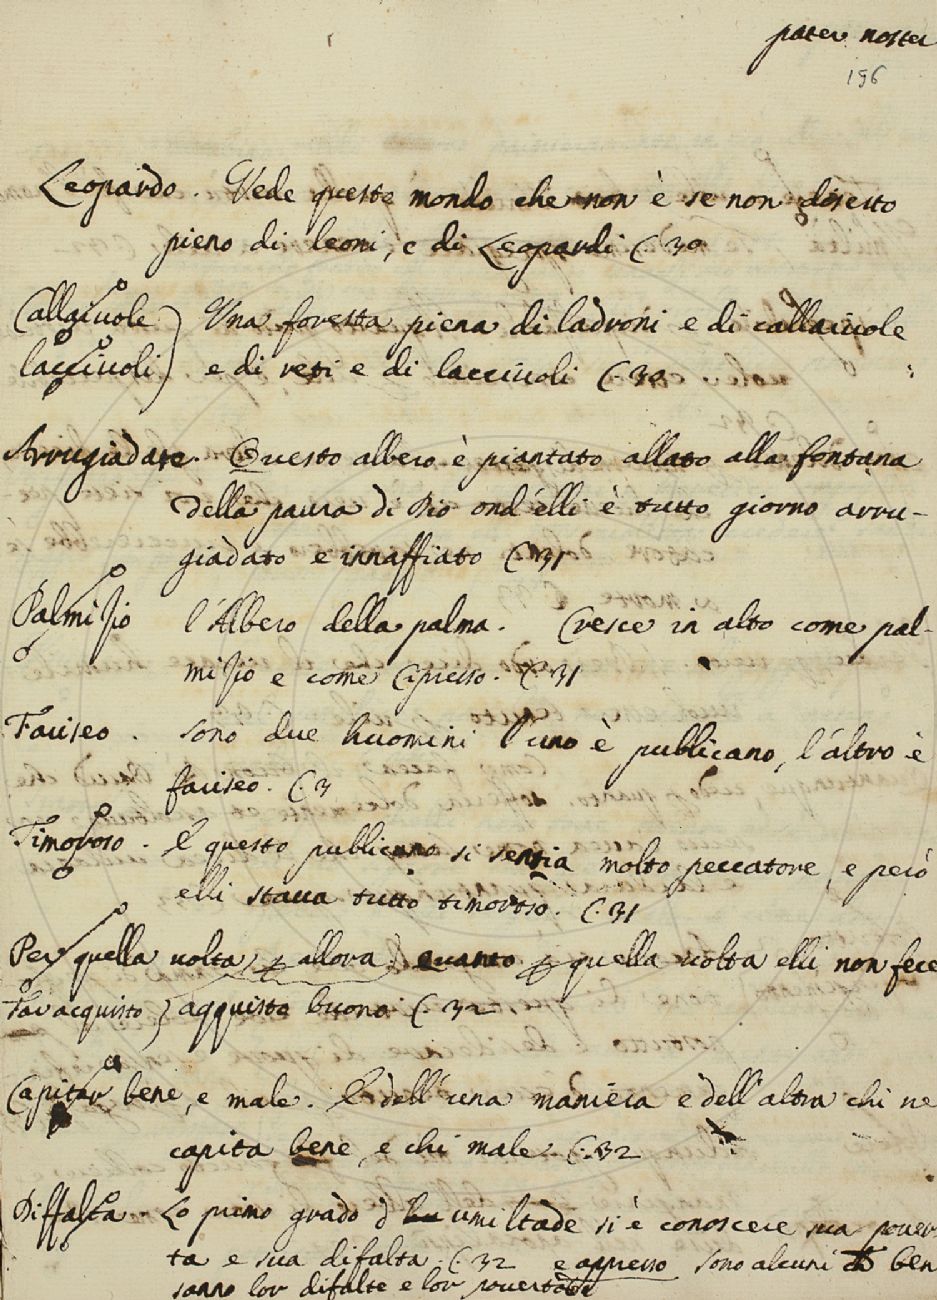 pater noster
196
Leopardo. Vede questo mondo che non è se non diserto
pieno di leoni, e di Leopardi C. 30
Callaiuole ) Una foresta piena di ladroni e di callaiuole
lacciuoli ) e di reti e di lacciuoli C. 30
Arrugiadare. Questo albero è piantato allato alla fontana
della paura di Dio ond'elli è tutto giorno arru-
giadato e innaffiato C. 31
Palmisio l'Albero della palma. Cresce in alto come pal-
misio e come Cipresso. C. 31
Fariseo. sono due huomini l'uno è publicano, l'altro è
fariseo. C. 3
Timoroso. E questo publicano si sentia molto peccatore, e però
elli stava tutto timoroso. C. 31
Per quella volta, p allora) quanto p quella volta elli non fece
Far acquisto ) acquisto buono C. 32
Capitar bene, e male. E dell'una maniera e dell'altra chi ne
capita bene, e chi male. C. 32
Diffalta. Lo primo grado d umiltade si è conoscere sua pover
ta e sua difalta. C. 32 e appresso sono alcuni ch ben
sanno lor difalte e lor povertade